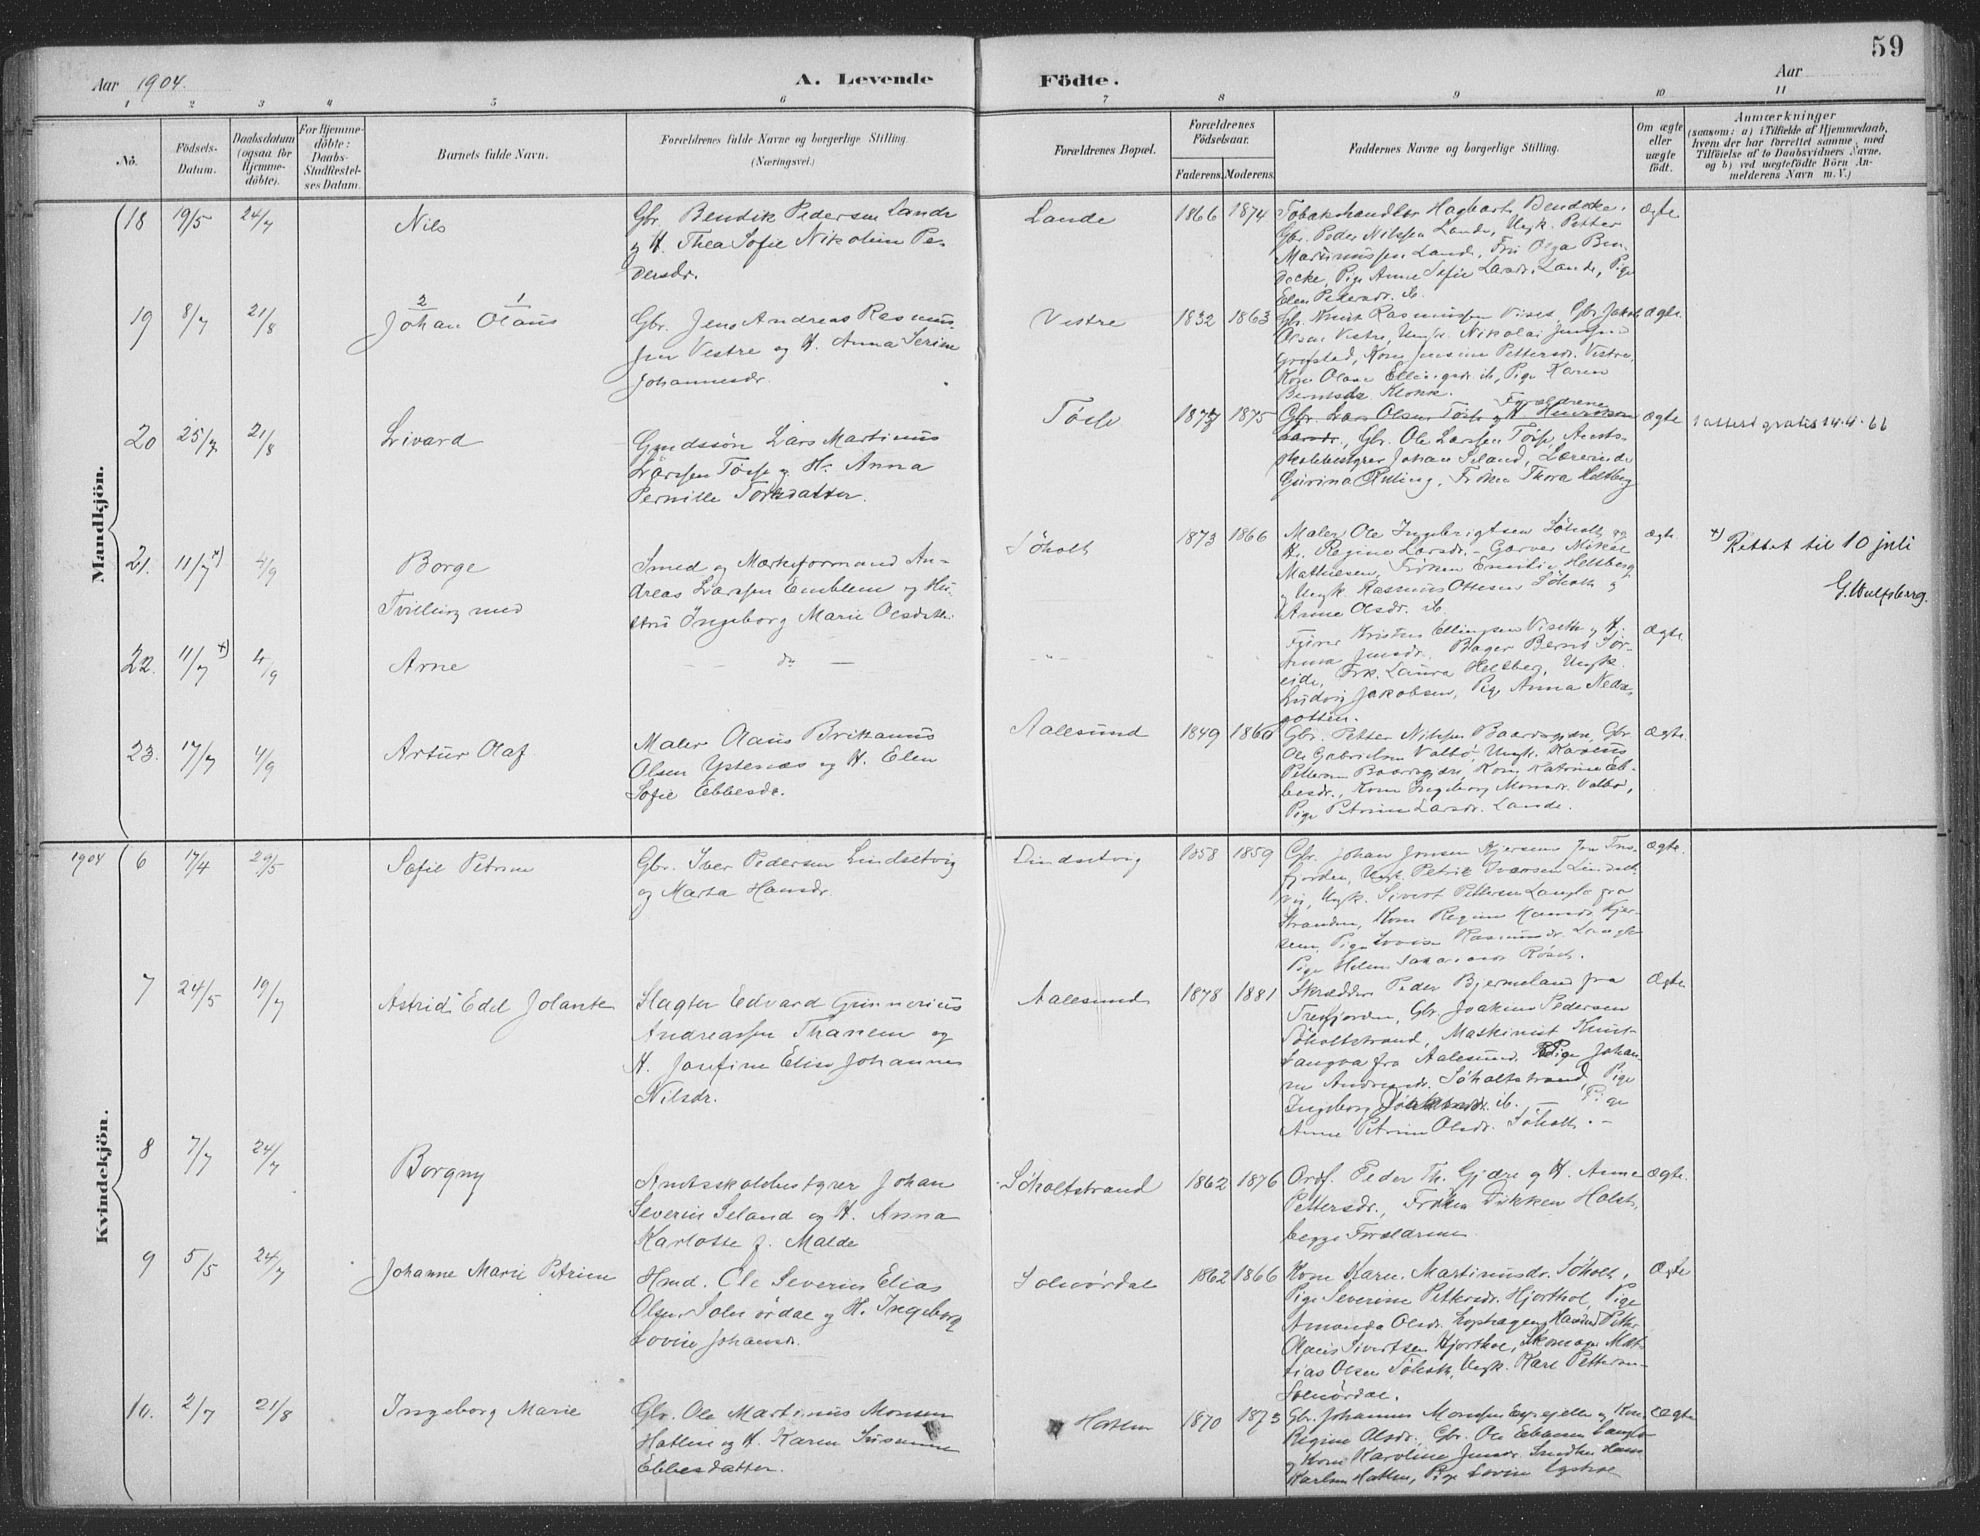 59
Aar 1904. A. Levende Födte. Aar
1 2 3 4 5 6 7 8 9 10 11
No.
Födsels-
Datum.
Daabsdatum
(ogsaa for
Hjemme-
döbte).
For Hjemme-
döbte:
Daabs-
Stadfæstel-
ses Datum.
Barnets fulde Navn.
Forældrenes fulde Navne og borgerlige Stilling.
(Næringsvei.)
Forældrenes Bopæl.
Forældrenes
Födselsaar.
Faderens. Moderens.
Faddernes Navne og borgerlige Stilling.
Om ægte
eller
uægte
födt.
Anmærkninger
(saasom: a) i Tilfælde af Hjemmedaab,
hvem der har forrettet samme, med
Tilföielse af to Daabsvidners Navne,
og b) ved uægtefödte Börn An-
melderens Navn m. V.)
Mandkjön.
18 19/5 24/7 Nils
Gbr. Bendik Pedersen Lande
og H. Thea Sofie Nikoline Pe-
dersdr.
Lande 1866 1874
Tobakshandler Hagbart Bendeke,
Gbr. Peder Nilssen Lande, Ungk. Petter
Martinussen Lande, Fru Olga Ben-
deke, Pige Anne Sofie Larsdr. Lande, Pige
Elen Petersdr. ib.
Ægte
19 8/7 21/8
2 1
Johan Olaus
Gbr. Jens Andreas Rasmus-
sen Vestre og H. Anna Serine
Johannesdr.
Vestre 1832 1863
Gbr. Knut Rasmussen Viset, Gbr. Jakob
Olsen Vestre, Ungk. Nikolai Jensen
Grøstad, Kone Jensine Pettersdr. Vestre,
Kone Olave Ellingsdr. ib., Pige Karen
Berntsdr. Klokk.
Ægte
20 25/7 21/8 Sivard
Gmdssøn Lars Martinus
Larssen Tøsse og H. Anna
Pernille Torsdatter.
Tøsse 1877 1875
Forældrene
Gbr. Lars Olsen Tøsse og H.
Larsdr., Gbr. Ole Larssen Tøsse, Amts-
skolebestyrer Johan Seland, Lærerinde
Gurina Rating, Frøken Thora Heltberg
Ægte
1 attest gratis 14.4.66
21. 11/7 x) 4/9 Borge
Tvilling med
Smed og Mærkeformand An-
dreas Larssen Emblem og Hu-
stru Ingeborg Marie Olsdtr.
Søholt 1873 1866
Maler Ole Ingebrigtsen Søholt og
H. Regine Larsdr. - Garver Nikol.
Mathiesen, Frøken Emilie Heltberg
og Ungk. Rasmus Ottesen Søholt og
Anne Olsdr. ib.
Ægte
x) Rettet til 10 juli
G. Wulfsberg.
22. 11/7 x) 4/9 Arne
— — do —
- " -
Fyrer Kristen Ellingsen Viseth og H.
Anna Jensdr., Bager Bernt Sør-
eide, Frk. Laura Heltberg, Ungk.
Ludvig Jakobsen, Pige Anna Nedre-
gotten.
Ægte
23. 17/7 4/9 Artur Olaf
Maler Olaus Brittanus
Olsen Ystenæs og H. Elen
Sofie Ebbesdr.
Aalesund 1849 1860
Gbr. Petter Nilssen Baardsgjære, Gbr.
Ole Gabrielsen Valbø, Ungk. Karenus
Pettersen Baardsgjære, Kone Katrine Eb-
besdr., Kone Ingeborg Monsdr. Valbø,
Pige Petrine Larsdr. Lande.
Ægte.
Kvindekjön.
1904 6 17/4 29/5 Sofie Petrine
Gbr. Iver Pedersen Lindsetvig
og Marta Hansdr.
Lindsetvig 1858 1859
Gbr. Johan Jonsen Kjersem fra Tres-
fjorden, Ungk. Petrik Iversen Lindset-
vig, Ungk. Sivert Pettersen Langlo fra
Stranden, Kone Regine Hansdr. Kjer-
sem, Pige Lovise Rasmusdr. Langlo
Ægte.
7 24/5 19/7 Astrid Edel Jolante
Slagter Edvard Gunnerius
Andreassen Thanem og
H. Josefine Elise Johannes
Nilsdr.
Aalesund 1878 1881
Skrædder Peder Bjermeland fra
Tresfjorden, Gbr. Joakim Pedersen
Søholtstrand, Maskinist Knut
Langva fra Aalesund, Pige Johan-
ne Andreasdr. Søholtstrand, Pige
Ingeborg ib. Pige
Anne Petrine Olsdr. Søholt. -
Ægte
8 7/7 24/7 Borgny
Amtsskolebestyrer Johan
Severin Seland og H. Anna
Karlotte f. Malde
Søholtstrand 1862 1876
Ordf. Peder Th. Gjære og H. Anne
Pettersdr., Frøken Fikken Holst,
begge Forældrene
Ægte.
9 5/5 24/7 Johanne Marie Petrine
Hmd. Ole Severin Elias
Olsen Solnørdal og H. Ingeborg
Lovise Johansdr.
Solnørdal 1862 1866
Kone Karen Martinusdr. Søholt,
Pige Severine Pettersdr. Hjorthol, Pige
Amanda Olsdr. Ekophagen, Husmd. Petter
Olaus Sivertsen Hjorthol, Skomager Mat-
tias Olsen Søholt, Ungk. Karl Petterson
Solnørdal.
Ægte
10. 2/7 21/8 Ingeborg Marie
Gbr. Ole Martinus Monsen
Hatlen og H. Karen Susanne
Ebbesdatter.
Hatlen 1870 1873
Gbr. Johannes Monssen og Kone
Regine Olsdr., Gbr. Ole Ebbesen Langlo
og Kone Karoline Jensdr.
Karlsen Hatlen, Pige Lovise
Ægte